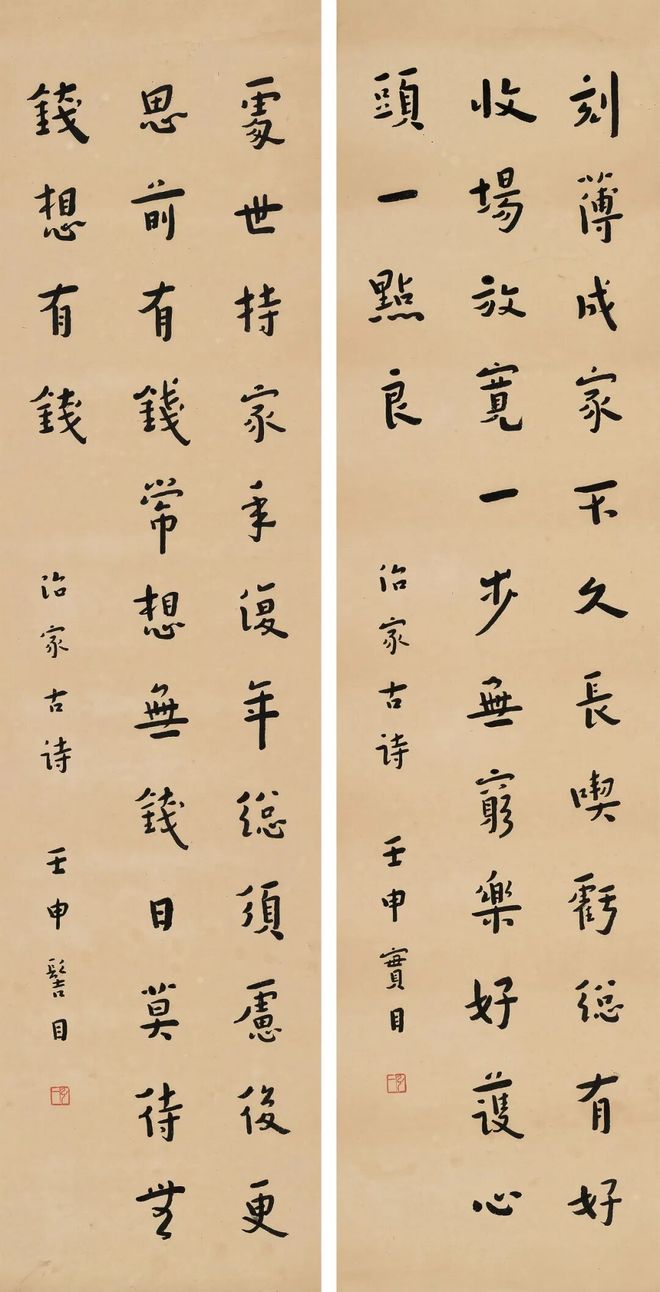 刻薄成家不久長喫虧總有好
收場放寬一步無窮樂好護心
頭一點良
治家古诗 壬申 目
處世持家年復年總須慮後更
思前有錢常想無錢日莫待無
錢想有錢
治家古诗 壬申髻目